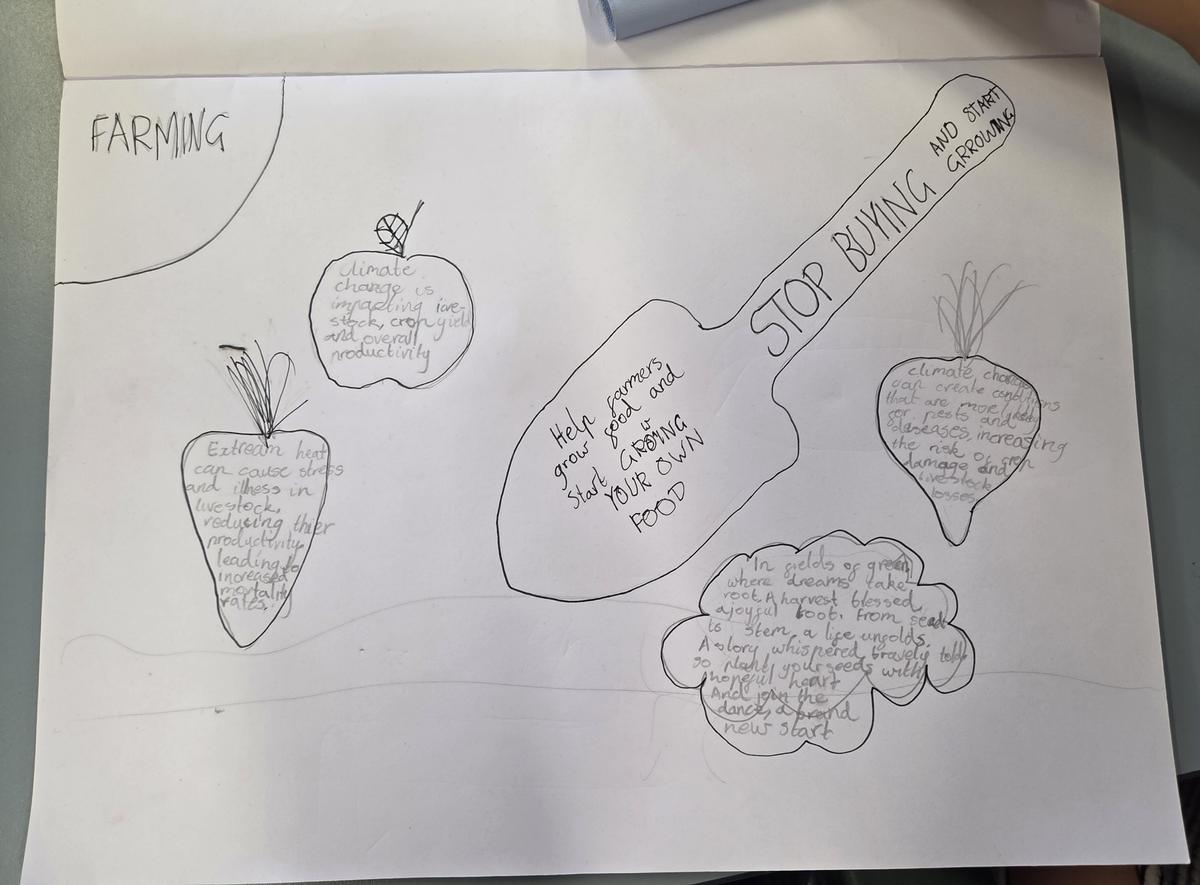 FARMING
Climate
change is
impacting live-
stock, crop yield
and overall
productivity
Extream heat
can cause stress
and illness in
livestock,
reducing thier
productivity
leading to
increased
mortality
rates.
STOP BUYING
AND START
GRROWING
Help farmers
grow food and
Start GROWING
YOUR OWN
FOOD
climate change
can create conditions
that are more
for pests and
diseases, increasing
the risk of crop
damage and
livestock
losses
In fields of green,
where dreams take
root. A harvest blessed,
a joyful toot. From seed
to stem, a life unfolds.
A story whispered, bravely told
so plant your seeds with
hopeful heart
And join the
dance, a brand
new start